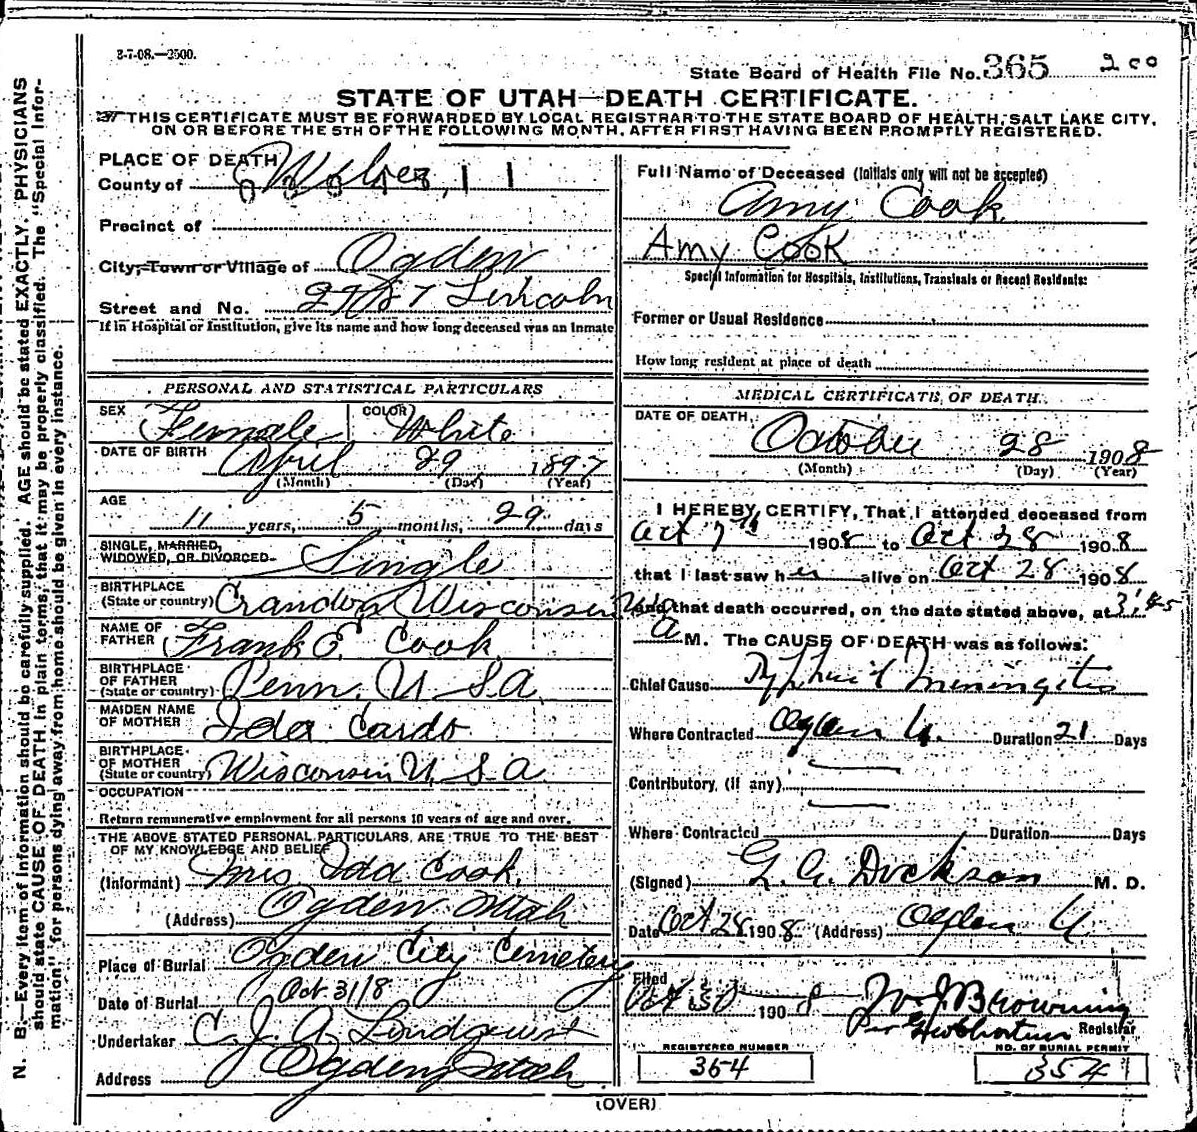 3-7-08.—2500.
State Board of Health File No. 365 200
STATE OF UTAH—DEATH CERTIFICATE.
THIS CERTIFICATE MUST BE FORWARDED BY LOCAL REGISTRAR TO THE STATE BOARD OF HEALTH, SALT LAKE CITY,
ON OR BEFORE THE 5TH OF THE FOLLOWING MONTH, AFTER FIRST HAVING BEEN PROMPTLY REGISTERED.
N. B.—Every item of information should be carefully supplied. AGE should be stated EXACTLY. PHYSICIANS
should state CAUSE OF DEATH in plain terms, that it may be properly classified. The "Special Infor-
mation" for persons dying away from home should be given in every instance.
PLACE OF DEATH
County of Weber
Precinct of
City, Town or Village of Ogden
Street and No. Lincoln
If in Hospital or Institution, give its name and how long deceased was an inmate
PERSONAL AND STATISTICAL PARTICULARS
SEX Female COLOR White
DATE OF BIRTH April 29 1897
(Month) (Day) (Year)
AGE
11 years, 5 months, 29 days
SINGLE, MARRIED,
WIDOWED, OR DIVORCED Single
BIRTHPLACE
(State or country) Crandon Wisconsin USA
NAME OF
FATHER Frank E. Cook
BIRTHPLACE
OF FATHER
(State or country) Penn. U S A
MAIDEN NAME
OF MOTHER Ida Cardo
BIRTHPLACE
OF MOTHER
(State or country) Wisconsin U. S. A
OCCUPATION
Return remunerative employment for all persons 10 years of age and over.
THE ABOVE STATED PERSONAL PARTICULARS ARE TRUE TO THE BEST
OF MY KNOWLEDGE AND BELIEF
(Informant) Mrs Ida Cook
(Address) Ogden Utah
Place of Burial Ogden City Cemetery
Date of Burial Oct 31/8
Undertaker C. J. A. Lindquist
Address Ogden, Utah
Full Name of Deceased (Initials only will not be accepted)
Amy Cook
Amy Cook
Special Information for Hospitals, Institutions, Transients or Recent Residents:
Former or Usual Residence
How long resident at place of death
MEDICAL CERTIFICATE OF DEATH
DATE OF DEATH October 28 1908
(Month) (Day) (Year)
I HEREBY CERTIFY, That I attended deceased from
Oct 7th 1908 to Oct 28 1908
that I last saw her alive on Oct 28 1908
and that death occurred, on the date stated above, at 3:45
a M. The CAUSE OF DEATH was as follows:
Chief Cause Typhoid Meningitis
Where Contracted Ogden U. Duration 21 Days
Contributory, (if any)
Where Contracted Duration Days
(Signed) G. A. Dickson M. D.
Date Oct 28 1908 (Address) Ogden U
Filed Oct 30 1908 Wm J Browning
Per Registrar
REGISTERED NUMBER
354
NO. OF BURIAL PERMIT
354
(OVER)